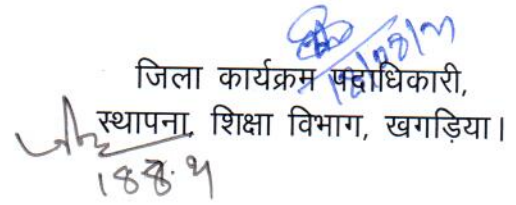 जिला कार्यक्रम पदाधिकारी,
स्थापना, शिक्षा विभाग, खगड़िया।